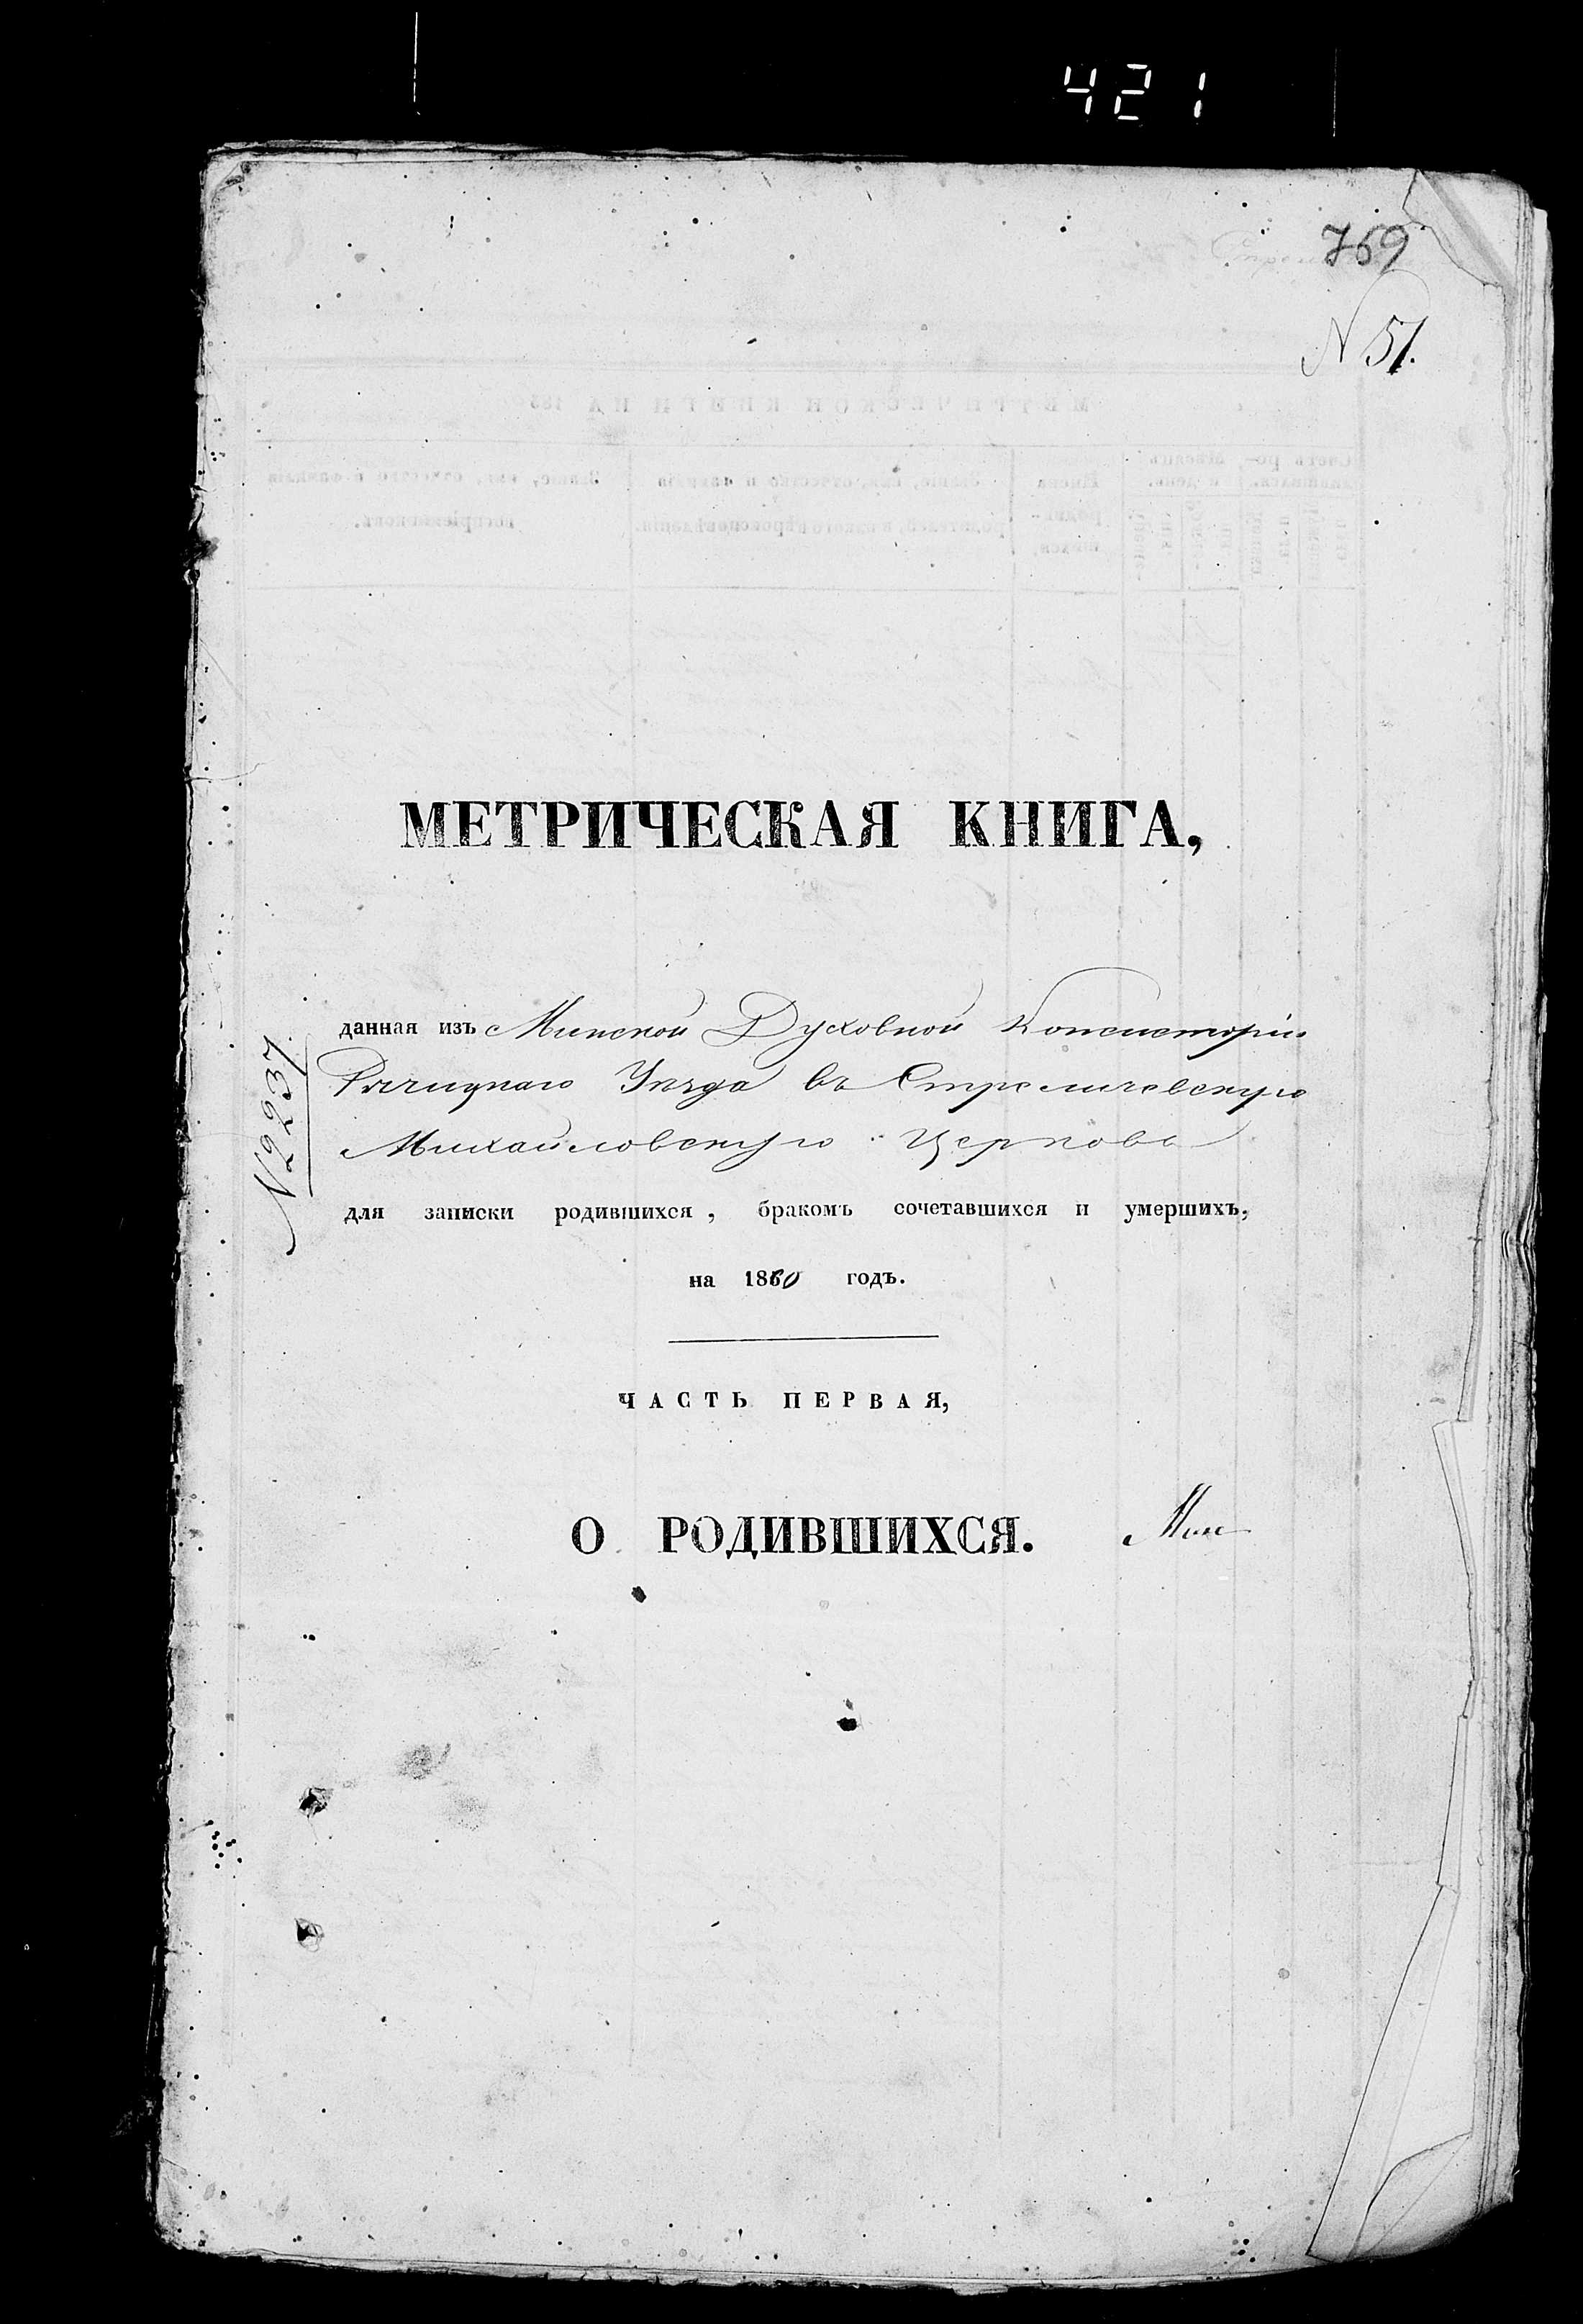 421
769
N 51.
МЕТРИЧЕСКАЯ КНИГА,
N 2237.
данная изъ Минской Духовной Консисторіи
Рѣчицкаго Уѣзда въ Стреличевскую
Михайловскую Церковь
для записки родившихся, бракомъ сочетавшихся и умершихъ,
на 1860 годъ.
ЧАСТЬ ПЕРВАЯ,
О РОДИВШИХСЯ.